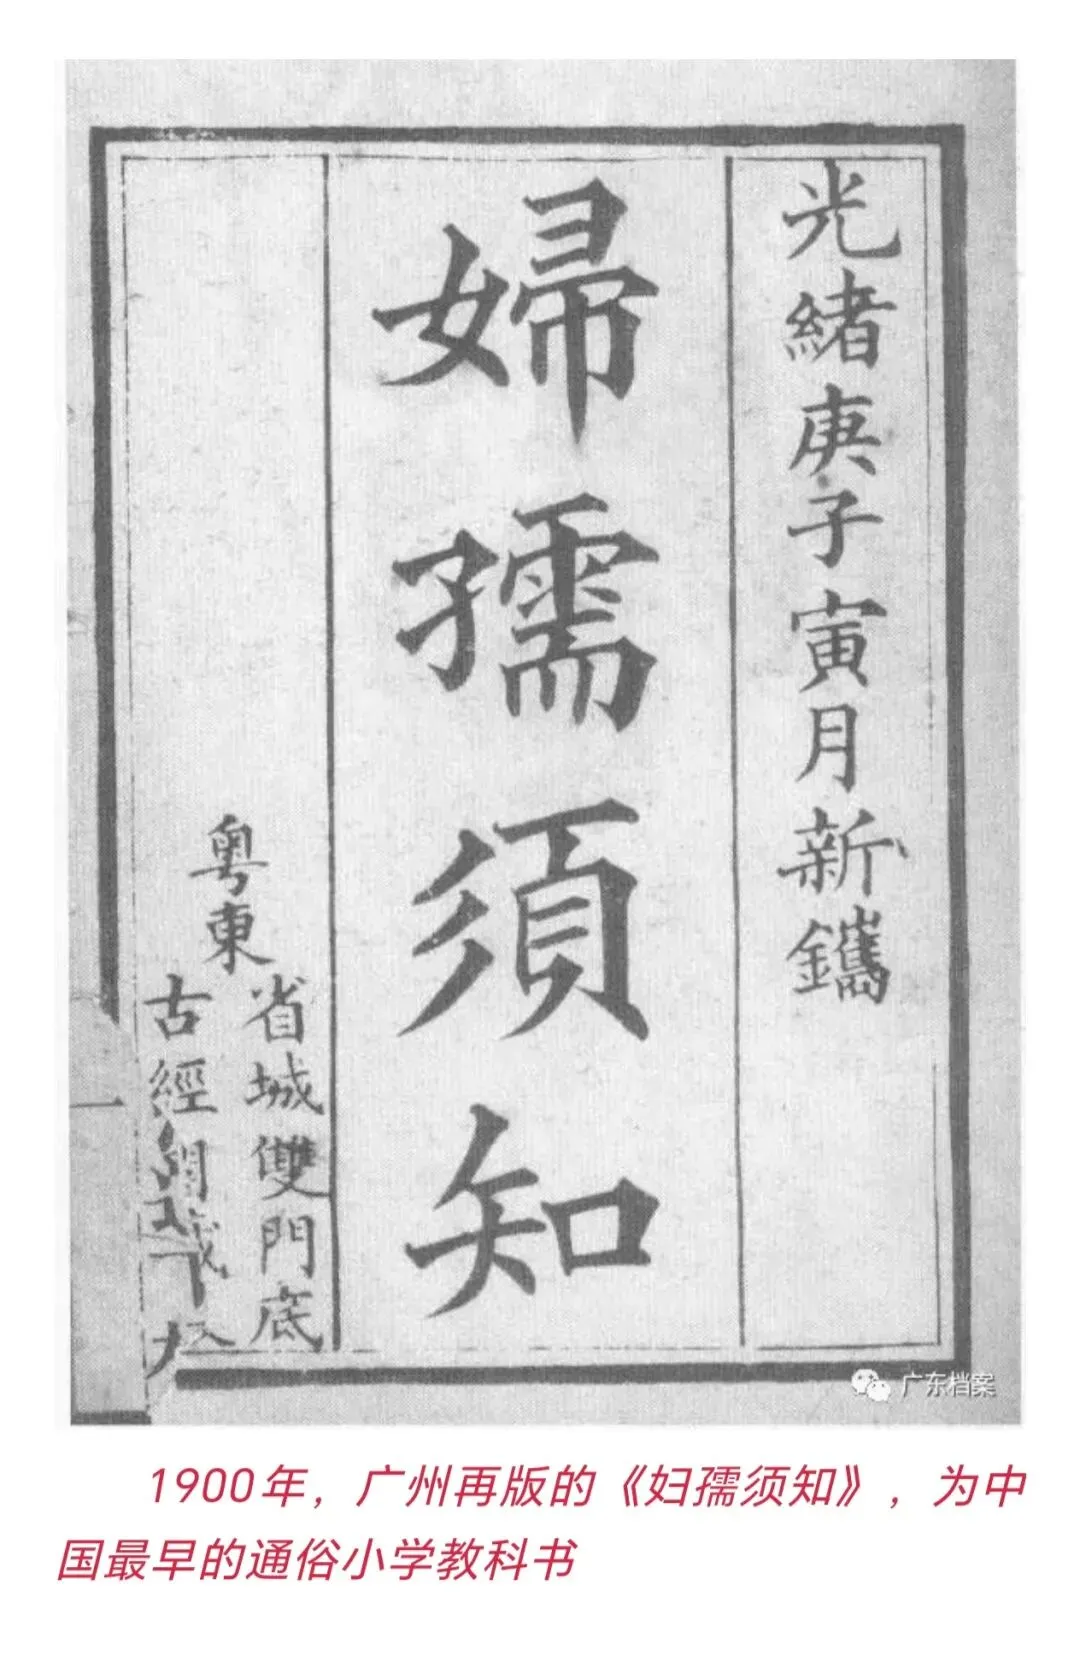 光緒庚子寅月新鐫
婦孺須知
粤東
省城雙門底
古經閣藏板
广东档案
1900年，广州再版的《妇孺须知》，为中
国最早的通俗小学教科书